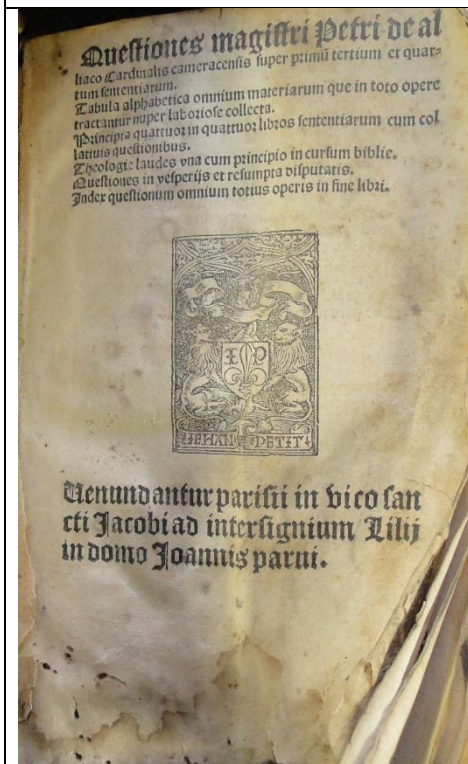 Questiones magistri Petri de al
liaco Cardinalis cameracensis super primū tertium et quar-
tum sententiarum.
Tabula alphabetica omnium materiarum que in toto opere
tractantur nuper laboriose collecta.
Principia quattuor in quattuor libros sententiarum cum col
latiuis questionibus.
Theologie laudes vna cum principio in cursum biblie.
Questiones in vesperijs et resumpta disputatis.
Index questionum omnium totius operis in fine libri.
I P
IEHAN PETIT
Uenundantur parisii in vico san
cti Jacobi ad intersignium Lilij
in domo Joannis parui.